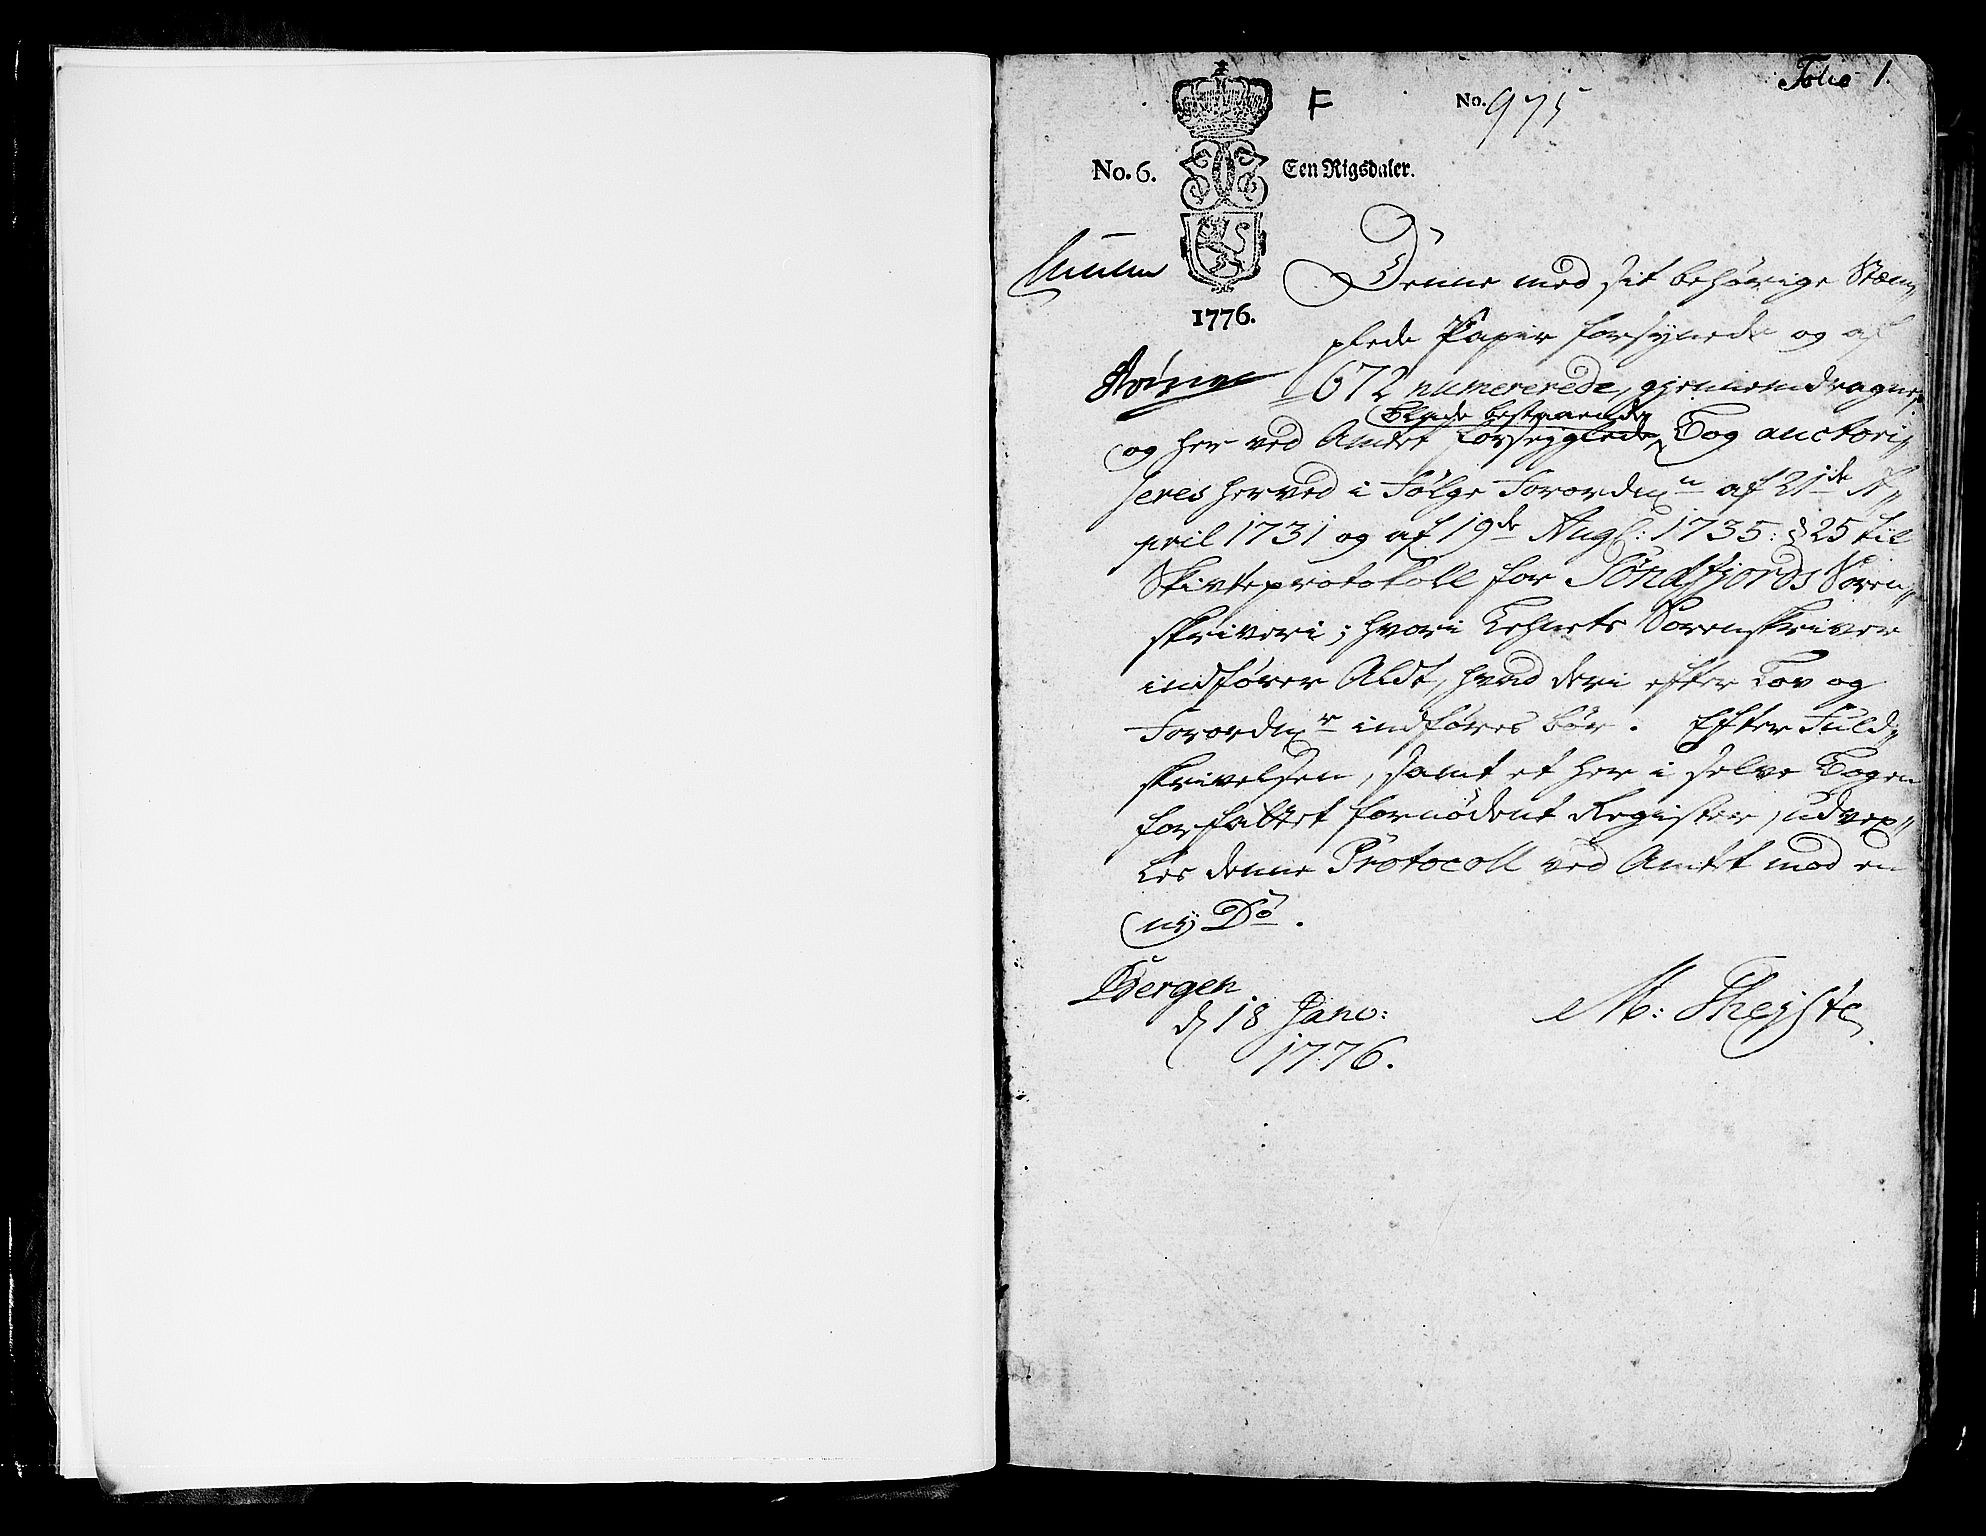 Folio 1.
F No. 975
No. 6. Een Rigsdaler.
1776.
Denne med sit behørige Stem„
plede Papir forsÿnede og af
672 numererede, gjennemdragne,
Blade bestaaende
og her ved Amtet forseyglede Bog auctori„
seres herved i Følge Forordn af 21de A„
pril 1731 og af 19de Aug: 1735: § 25 til
Skifteprotokoll for Søndfjords Soren„
skriveri; hvori Lehnets Sorenskriver
indfører Aldt, hvad deri efter Lov og
Forordnr indføres bør. Efter Fuld„
skrivelsen, samt et her i selve Bogen
forfattet fornødent Register, udvex„
les denne Protocoll ved Amtet mod en
nÿ Do.
Bergen
d 18 Janv:
1776.
M: Theÿste